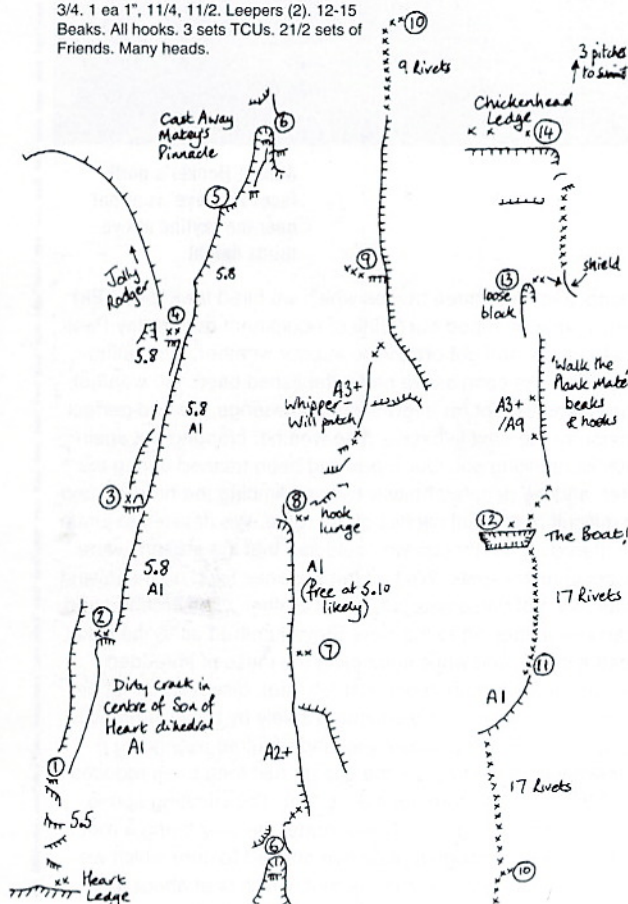 3/4. 1 ea 1", 11/4, 11/2. Leepers (2). 12-15
Beaks. All hooks. 3 sets TCUs. 21/2 sets of
Friends. Many heads.
Cast Away
Matey's
Pinnacle
6
5
5.8
Jolly
Rodger
4
5.8
5.8
A1
3
5.8
A1
2
Dirty crack in
centre of Son of
Heart dihedral
A1
1
5.5
xx Heart
Ledge
xx 10
9 Rivets
9
A3+
Whipper-
Will pitch
8
hook
lunge
A1
(free at 5.10
likely)
xx 7
A2+
6
3 pitches
to summit
Chickenhead
Ledge
x x x 14
13
shield
loose
block
'Walk the
Plank Mate'
beaks
& hooks
A3+
/A9
12
The Boat!
17 Rivets
11
A1
17 Rivets
10